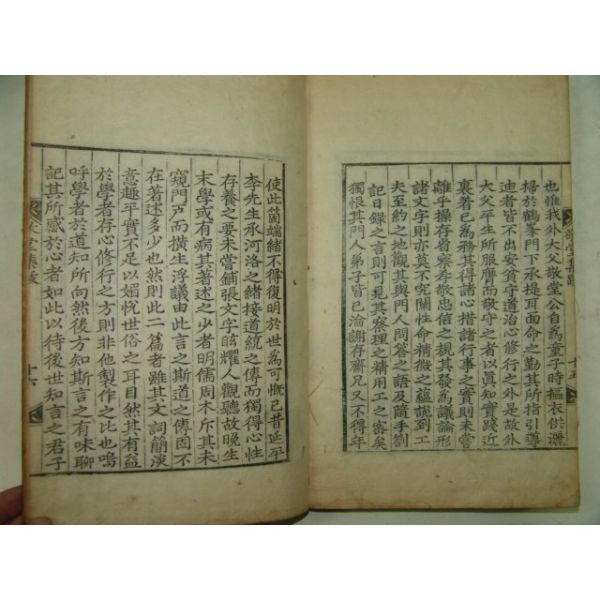 也惟我外大父敬堂公自爲童子時摳衣供灑
掃於鶴峯門下承提耳面命之勤其所指引導
迪者皆不出安貧守道治心修行之外是故外
大父平生所服膺而敬守之者以眞知實踐近
裏著己爲務其得諸心措諸行事之實則未嘗
離乎操存省察孝敬忠信之規其發爲議論形
諸文字則亦莫不究關性命精微之蘊說到工
夫至約之地觀其與門人問答之語及隨手劄
記日錄之言則可見其察理之精用工之密矣
獨恨其門人弟子皆已淪謝存齋兄又不得年
敬堂集跋
十五
使此箇端緖不得復明於世爲可慨已昔延平
李先生承河洛之緖接道統之傳而獨得心性
存養之要未嘗鋪張文字眩耀人觀聽故晚生
末學或有病其著述之少者明儒周木斥其未
窺門戶而橫生浮議由此言之斯道之傳固不
在著述多少也然則此二篇者雖其文詞簡淡
意趣平實不足以媚悅世俗之耳目然其有益
於學者存心修行之方則非他製作之比也嗚
呼學者於道知所向然後方知斯言之有味聊
記其所感於心者如此以待後世知言之君子
敬堂集跋
十六